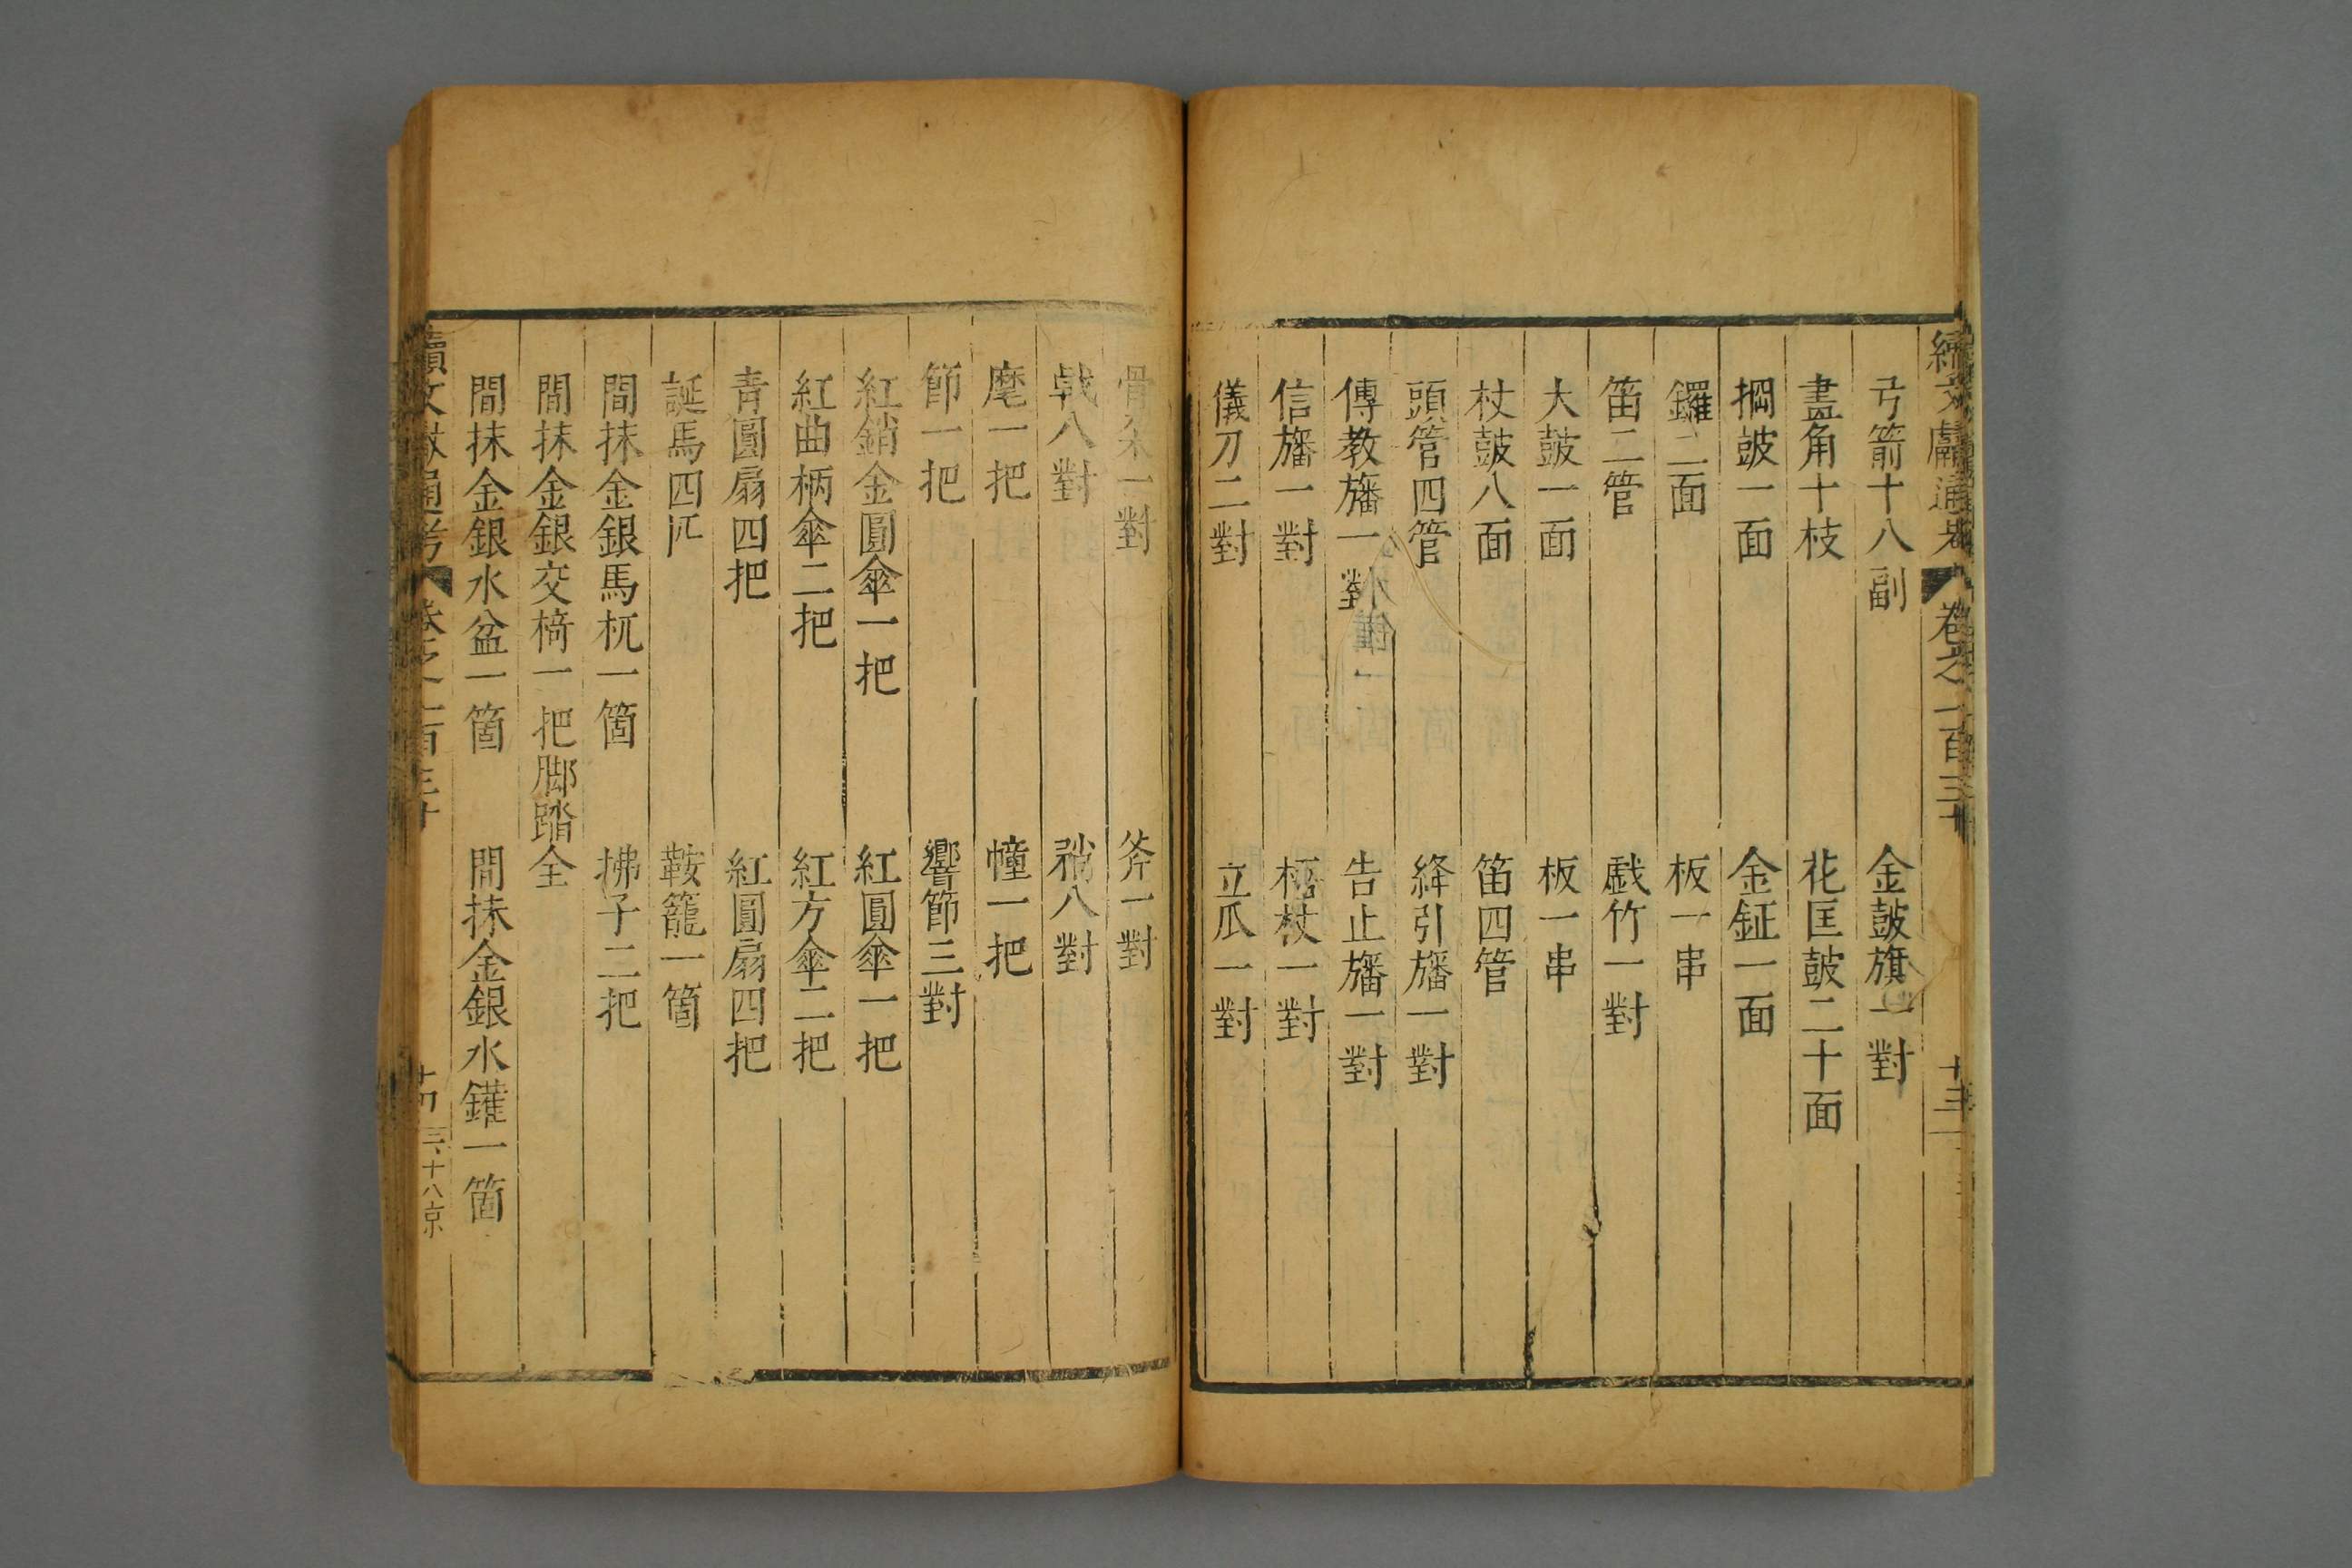 續文獻通考 卷之一百三十 十三
弓箭十八副 金皷旗一對
畫角十枝 花匡皷二十面
掆皷一面 金鉦一面
鑼二面 板一串
笛二管 戯竹一對
大皷一面 板一串
杖皷八面 笛四管
頭管四管 絳引旛一對
傳教旛一對 告止旛一對
信旛一對 梧杖一對
儀刀二對 立瓜一對
骨朶一對 斧一對
戟八對 矟八對
麾一把 幢一把
節一把 響節三對
紅銷金圓傘一把 紅圓傘一把
紅曲柄傘二把 紅方傘二把
青圓扇四把 紅圓扇四把
誕馬四匹 鞍籠一箇
間抹金銀馬杌一箇 拂子二把
間抹金銀交椅一把脚踏全
間抹金銀水盆一箇 間抹金銀水鑵一箇
續文獻通考 卷之一百三十 三十八京